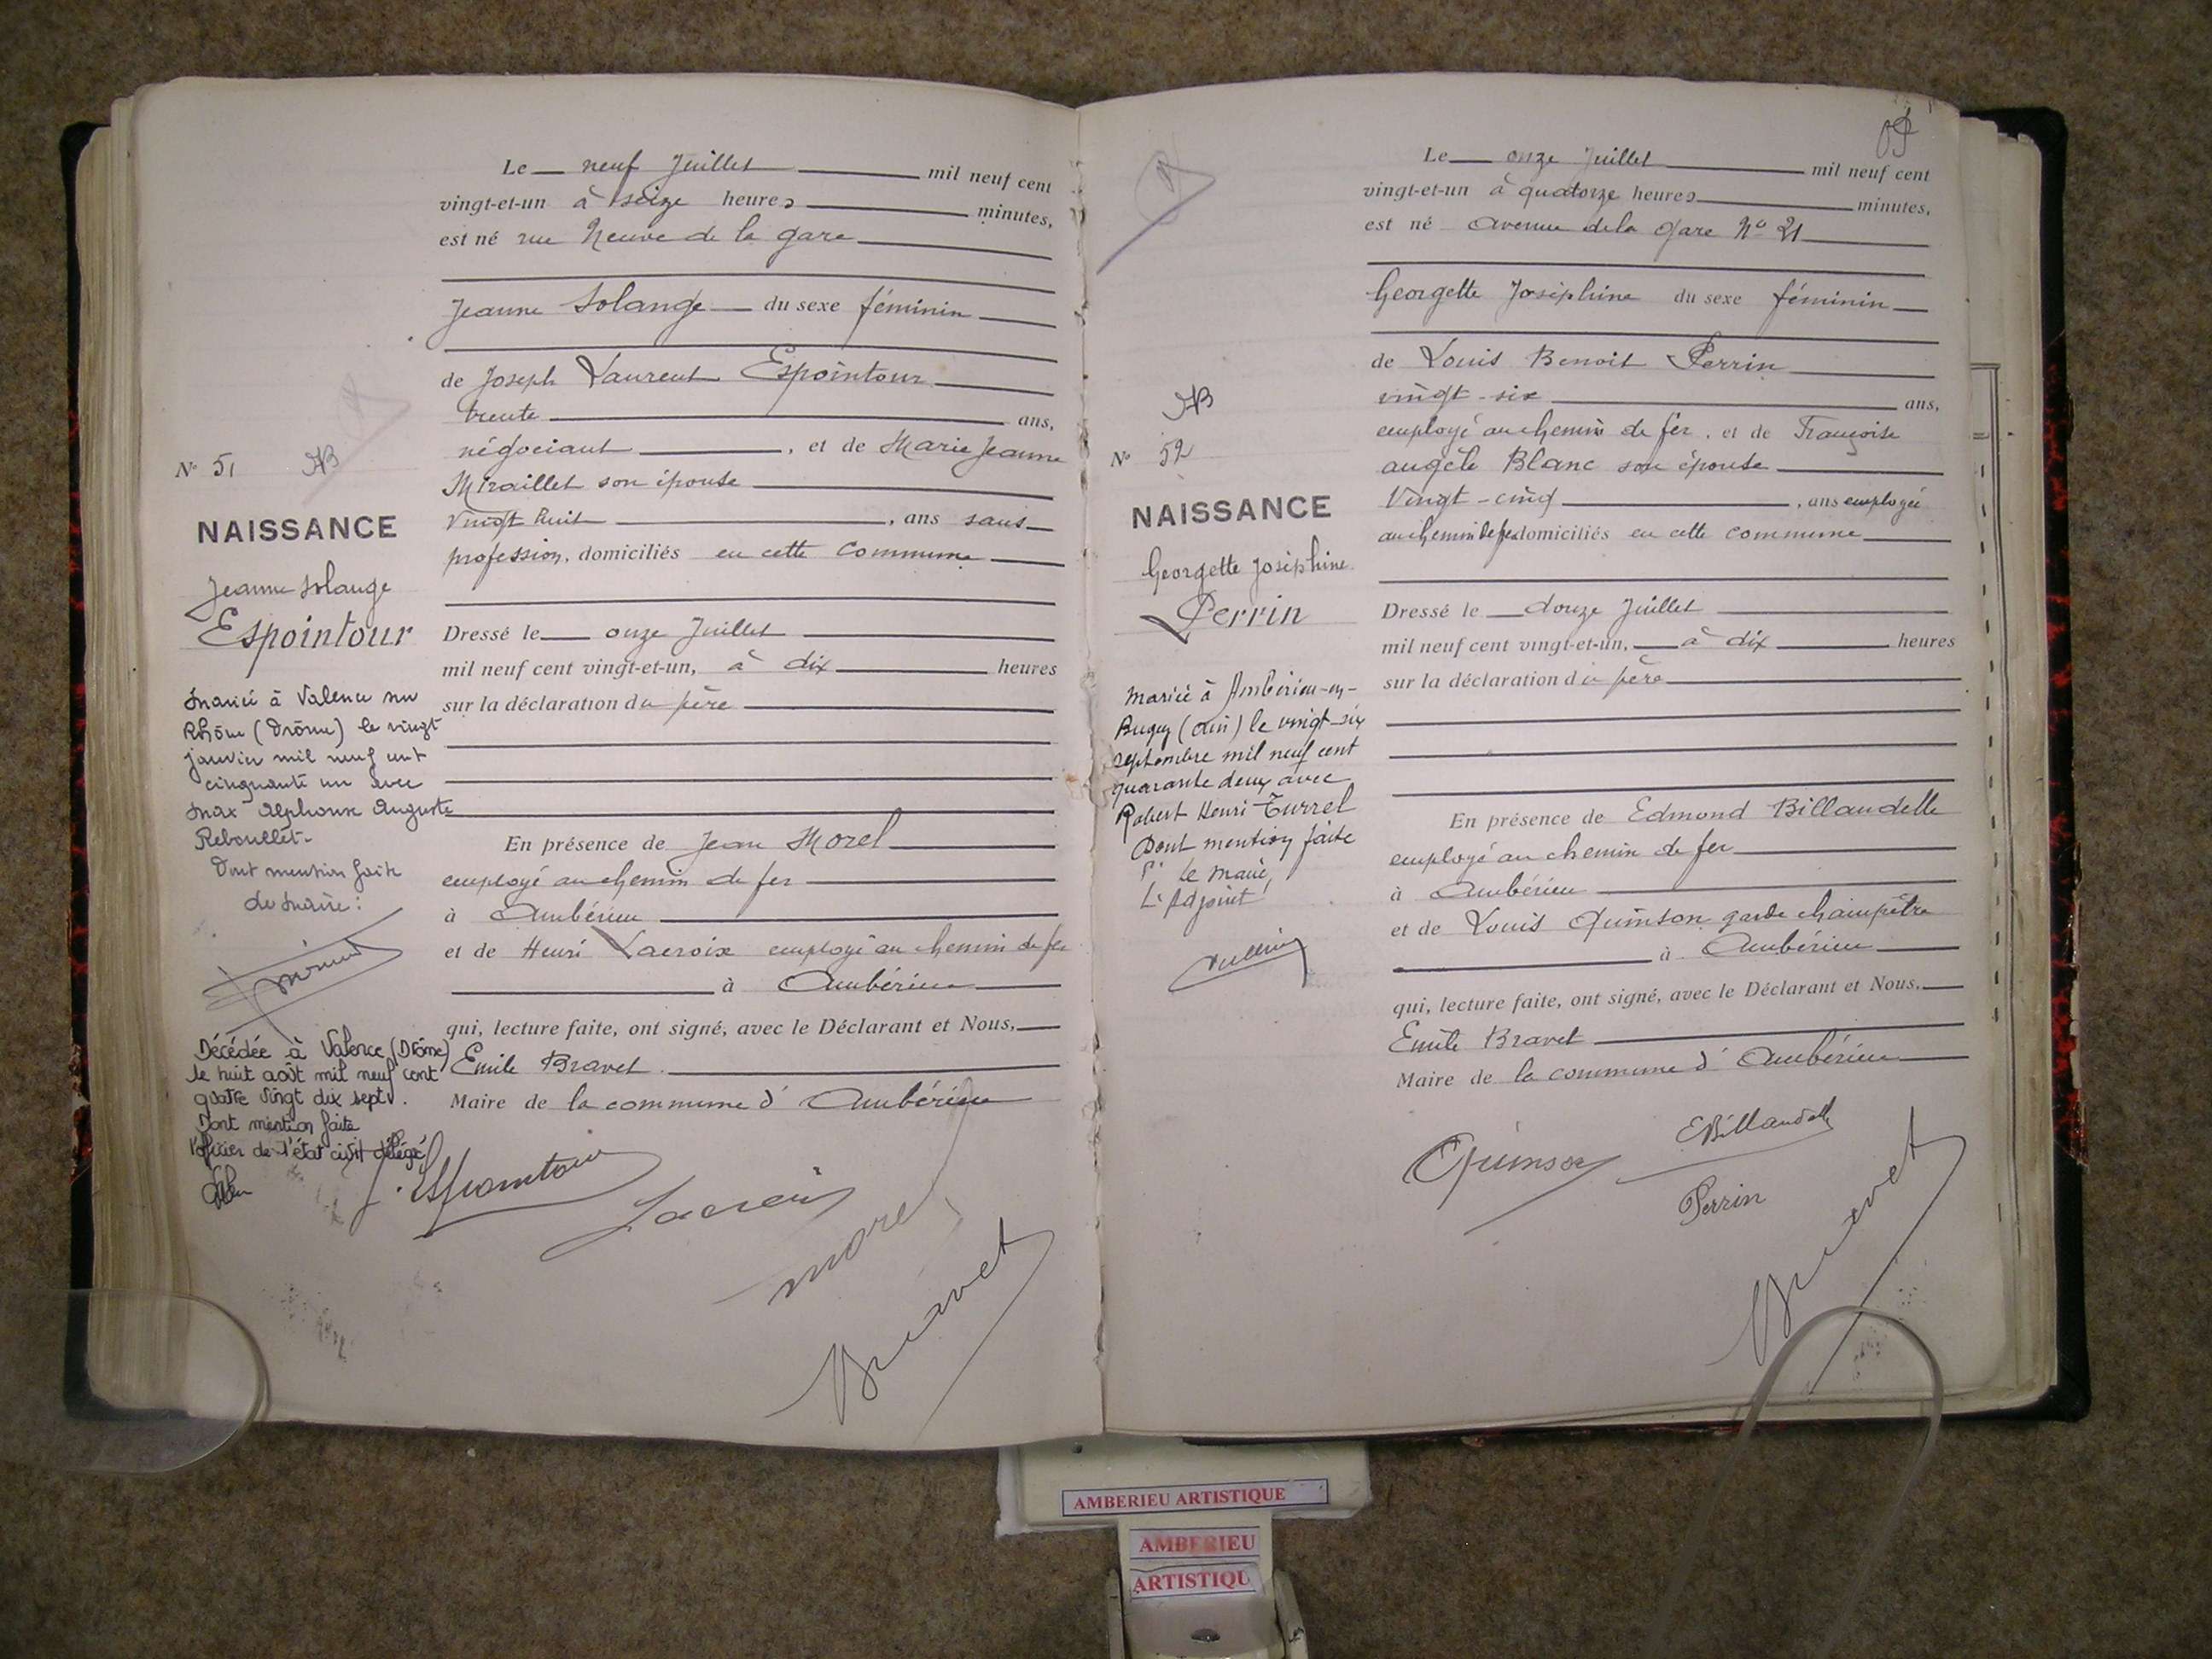 Le neuf Juillet mil neuf cent
vingt-et-un à seize heures minutes,
est né rue Neuve de la gare
Jeanne Solange du sexe féminin
de Joseph Laurent Espointour
trente ans,
négociant , et de Marie Jeanne
Miraillet son épouse
Vingt huit , ans sans
profession, domiciliés en cette commune
Dressé le onze Juillet
mil neuf cent vingt-et-un, à dix heures
sur la déclaration du père
En présence de Jean Morel
employé au chemin de fer
à Ambérieu
et de Henri Lacroix employé au chemin de fer
à Ambérieu
qui, lecture faite, ont signé, avec le Déclarant et Nous,
Emile Bravet
Maire de la commune d' Ambérieu
J. Espointour
Lacroix
Morel
Bravet
N° 51
NAISSANCE
Jeanne Solange
Espointour
Mariée à Valence sur
Rhône (Drôme) le vingt
janvier mil neuf cent
cinquante un avec
Max Alphonse Auguste
Reboullet
Dont mention faite
Le Maire :
Décédée à Valence (Drôme)
le huit août mil neuf cent
quatre vingt dix sept.
Dont mention faite
l'officier de l'état civil délégué
Le onze Juillet mil neuf cent
vingt-et-un à quatorze heures minutes,
est né avenue de la gare N° 21
Georgette Joséphine du sexe féminin
de Louis Benoit Perrin
vingt-six ans,
employé au chemin de fer, et de Françoise
Angèle Blanc son épouse
Vingt-cinq , ans employée
au chemin de fer domiciliés en cette commune
Dressé le douze Juillet
mil neuf cent vingt-et-un, à dix heures
sur la déclaration du père
En présence de Edmond Billaudelle
employé au chemin de fer
à Ambérieu
et de Louis Quinson garde champêtre
à Ambérieu
qui, lecture faite, ont signé, avec le Déclarant et Nous,
Emile Bravet
Maire de la commune d' Ambérieu
Quinson
EBillaudelle
Perrin
Bravet
N° 52
NAISSANCE
Georgette Joséphine
Perrin
Mariée à Ambérieu-en-
Bugey (Ain) le vingt-six
septembre mil neuf cent
quarante deux avec
Robert Henri Turrel
Dont mention faite
Pr le Maire,
L'Adjoint
AMBERIEU ARTISTIQUE
AMBERIEU
ARTISTIQU